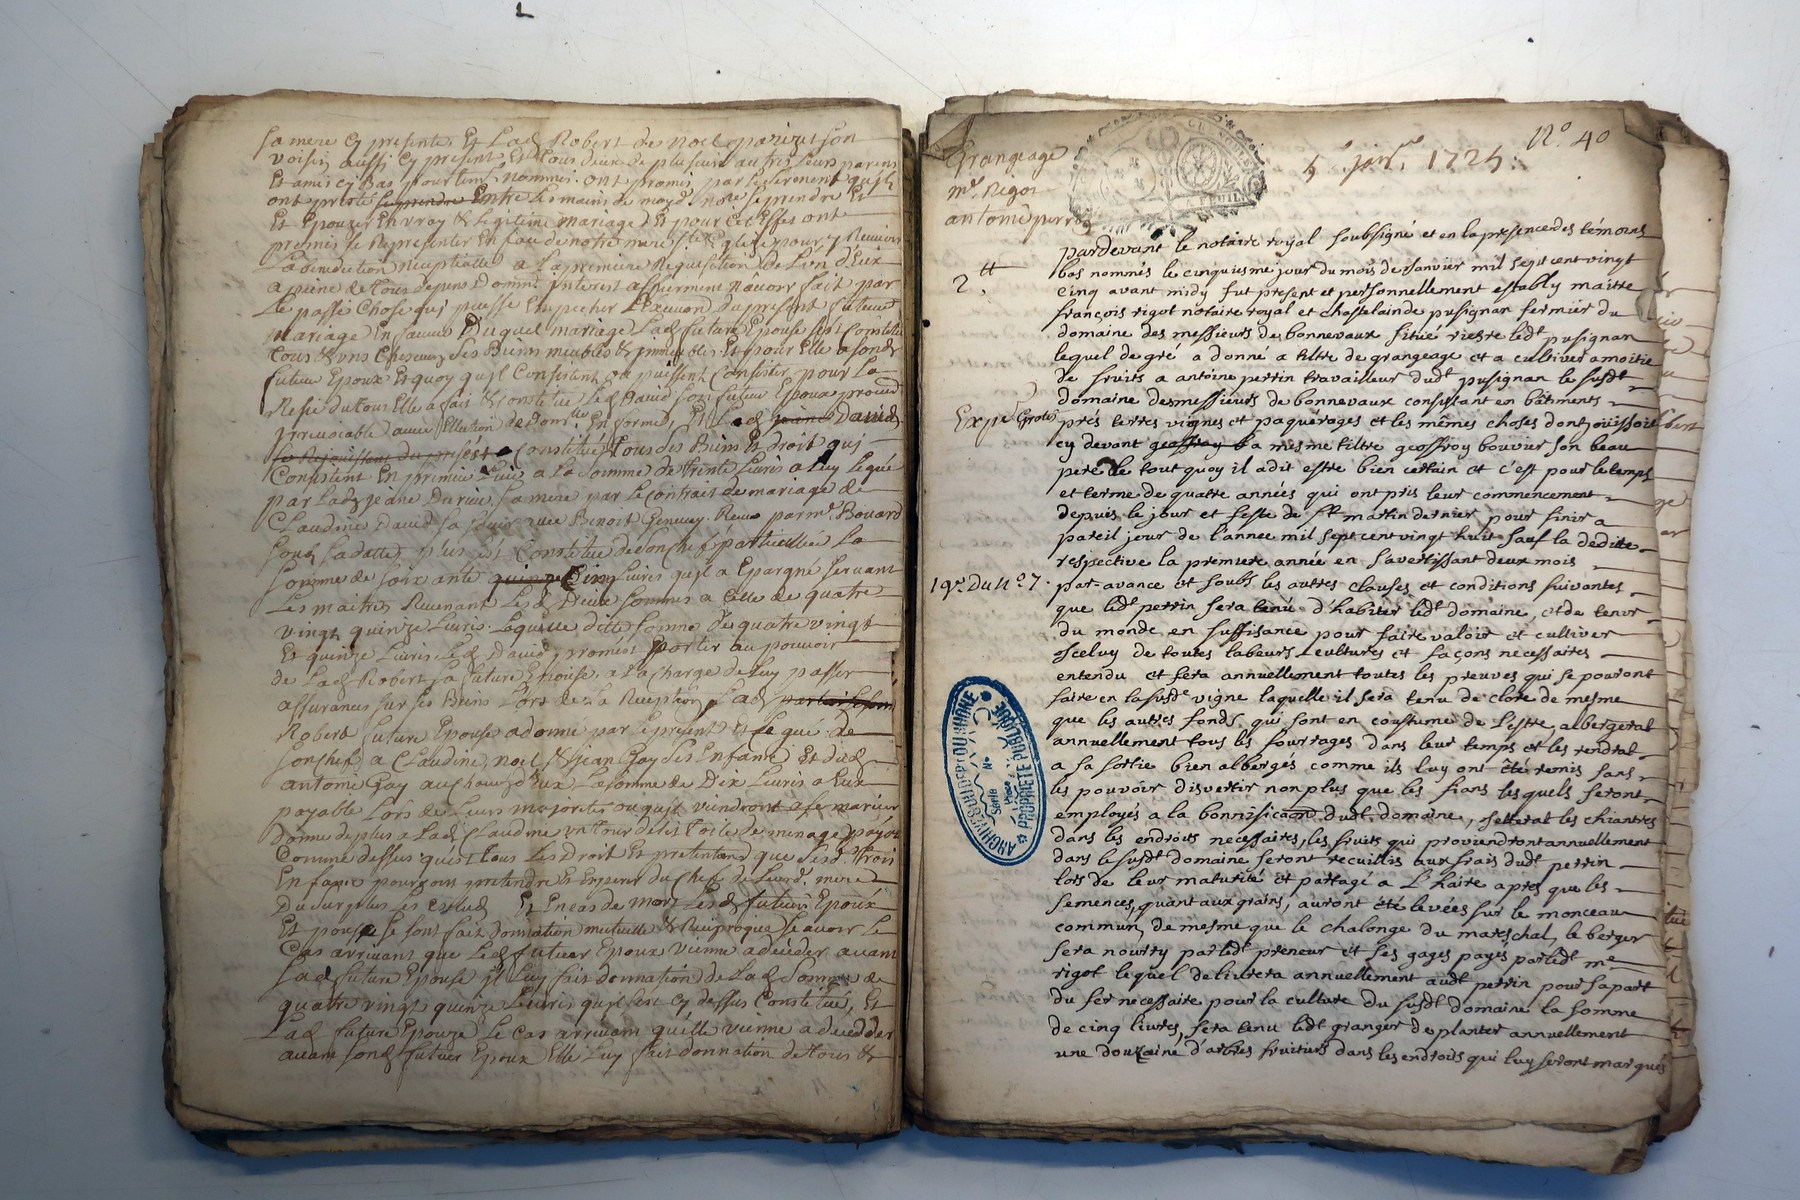 sa mere cy presente, Et Lad Robert de noel parizet son
voisin aussi cy present, Et tous deux de plusieurs autres Leurs parens
Et amis cy Bas pour tem. nommés. ont promis par le serement qu'ils
ont presté se prendre Entre Les mains de moyd. nore se prendre Et
Et Epouzer En vray & Legitime mariage, Et pour Cet Effet ont
promis se Representer En face de notre mere ste Eglize pour y Recevoir
La benediction nuptialle a La premiere Requisition de L'un d'Eux
a peine de tous depens Domm. interest afferment n'avoir fait par
Le passé Chose qui puisse Empecher L'Execuon du present futeur
mariage En faveur Duquel mariage Lad future Epouse s'est Constitué
tous & uns Chascuns ses Biens meubles & immeubles Et pour Elle a sond
futeur Epoux Et quoy qu'jl Consistent ou puissent Consister, pour La
Resie du tout Elle a fait & Constitué Led David son futeur Epoux procur
jrrevocable avec Ellection de Dom.lle En forme, Et Led David
Constitué tous ses Biens Et droit qui
Consistent En premier Lieu a La somme de trente Livres a Luy Legué
par Lad jeane Durieu sa mere par Le contrait de mariage de
Claudine David sa soeur avec Benoit Genevay Receu par mr. Bouard
sous sa datte, plus s'est Constitué de son chef particullier La
somme de soixante quinze Cinq Livres qu'jl a Epargné servant
Les maitres Revenant Lesd Deux sommes a Celle de quatre
vingt quinze Livres. Laquelle ditte somme de quatre vingt
Et quinze Livres Led David promet porter au pouvoir
de Lad Robert sa future Epouse, a La charge de Luy passer
assurances sur ses Biens Lors de La Reception, Lad
Robert future Epouse a donné par Le present Et Legué de
son chef a Claudine, noel & jean Gay ses Enfans Et dud
antoine Gay a chacun d'Eux La somme de Dix Livres a Eux
payable Lors de Leurs majorités ou qu'jls viendront a se marier
Donne de plus a Lad Claudine un tour de lit toile de menage payot
Comme dessus qu'est tous Les Droit Et pretentions que sesd. trois
Enfans pourront pretendre Et Esperer du Chef de Leurd. mere
Du surplus Les Exclud Et En cas de mort Lesd futeurs Epoux
Et pouse se sont fait donnation mutuelle & Reciproque scavoir Le
Cas arrivant que Led futeur Epoux vienne a deceder avant
Lad future Epouse jl Luy fait donnation de Lad somme de
quatre vingt quinze Livres qu'jl s'est cy dessus Constitué, Et
Lad future Epouze Le Cas arrivant qu'elle vienne a deceder
avant sond futeur Epoux Elle Luy fait donnation de tous &
Grangeage
mr. Rigot
antoine perrin
5e janr. 1725.
No. 40
2.tt
Expe. Grosse
19e. Du No 7.
pardevant le notaire royal soubsigné et en la presence des témoins
bas nommés le cinquiesme jour du mois de Janvier mil sept cent vingt
cinq avant midy fut present et personnellement estably maitre
françois rigot notaire royal et chastelain de pusignan fermier du
domaine des messieurs de bonnevaux situé riesre ledt pusignan
lequel de gré a donné a tiltre de grangeage et a cultiver a moitié
de fruits a antoine perrin travailleur dudt pusignan le susdt
domaine des messieurs de bonnevaux consistant en bâtiments
prés terres vignes et paquérages et les mêmes choses dont jouissoit
cy devant geoffroy b a mesme tiltre geoffroy bouvier son beau
pere de tout quoy il a dit estre bien certain et c'est pour le temps
et terme de quatre années qui ont pris leur commencement
depuis le jour et feste de st martin dernier pour finir a
pareil jour de l'année mil sept cent vingt huit sauf la deditte
respective la premiere année en s'avertissant deux mois
par avance et soubs les autres clauses et conditions suivantes
que ledt perrin sera tenu d'habiter ledt domaine, et de tenir
du monde en suffisance pour faire valoir et cultiver
jceluy de toutes labeurs cultures et façons necessaires
entendu et fera annuellement toutes les preuves qui se pouront
faire en la susdte vigne laquelle il sera tenu de clore de mesme
que les autres fonds qui sont en coustume de l'estre, albergerat
annuellement tous les fourrages dans leur temps et les rendrat
a sa sortie bien albergés comme ils luy ont été remis sans
les pouvoir divertir non plus que les fians lesquels seront
employés a la bonnificaon dudt domaine, jetterat les chiantres
dans les endroits necessaires, les fruits qui proviendront annuellement
dans le susdt domaine seront recuillis aux frais dudt perrin
lors de leur maturité et partagé a L'haire apres que les
semences, quant aux grains, auront été levées sur le monceau
commun, de mesme que le chalonge du mareschal, le berger
sera nourry par ledt preneur et ses gages payés par ledt me
rigot lequel delivrera annuellement audt perrin pour sa part
du fer necessaire pour la culture du susdt domaine la somme
de cinq livres, sera tenu ledt granger de planter annuellement
une douzaine d'arbres fruitiers dans les endroits qui luy seront marqués
ARCHIVES DU DEPT DU RHONE
Serie
No
Place
PROPRIETE PUBLIQUE